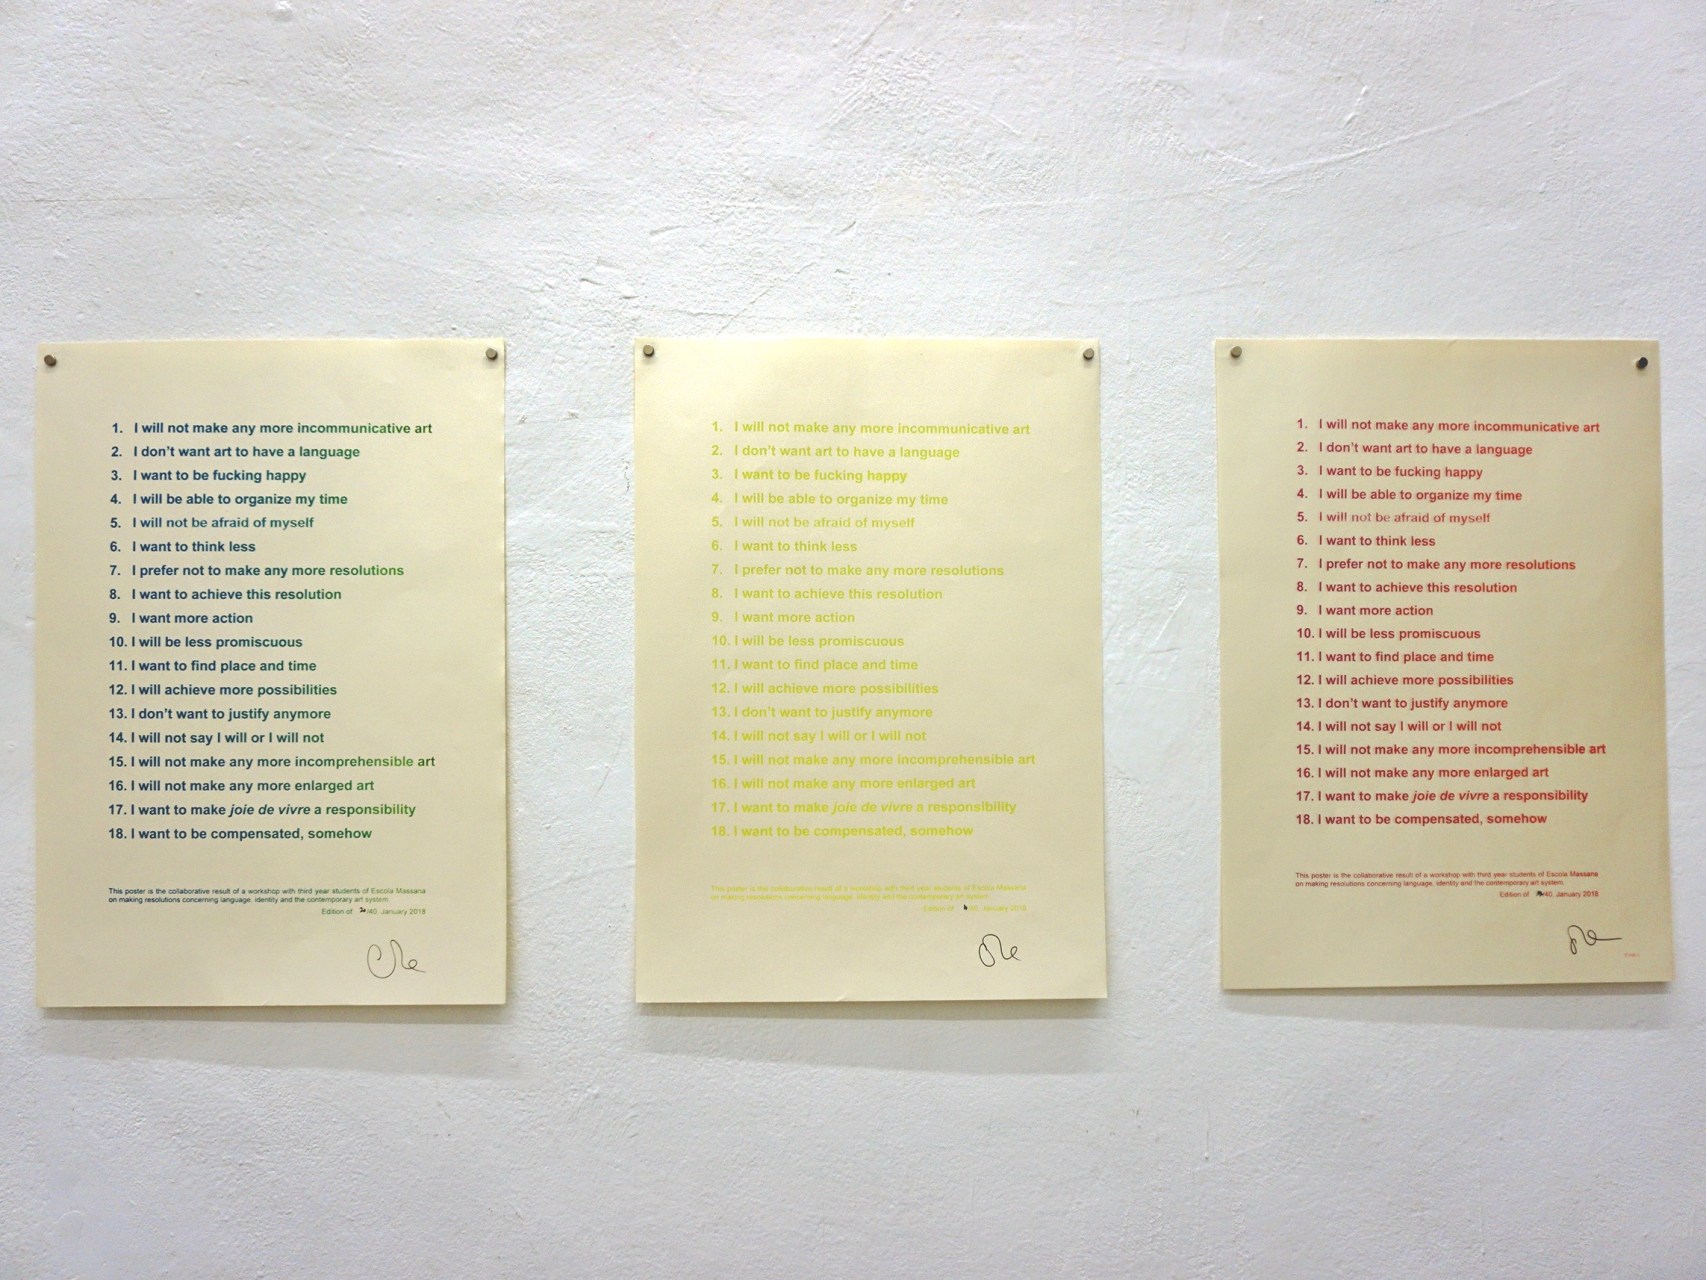 1. I will not make any more incommunicative art
2. I don't want art to have a language
3. I want to be fucking happy
4. I will be able to organize my time
5. I will not be afraid of myself
6. I want to think less
7. I prefer not to make any more resolutions
8. I want to achieve this resolution
9. I want more action
10. I will be less promiscuous
11. I want to find place and time
12. I will achieve more possibilities
13. I don't want to justify anymore
14. I will not say I will or I will not
15. I will not make any more incomprehensible art
16. I will not make any more enlarged art
17. I want to make joie de vivre a responsibility
18. I want to be compensated, somehow
This poster is the collaborative result of a workshop with third year students of Escola Massana
on making resolutions concerning language, identity and the contemporary art system.
Edition of /40. January 2018
1. I will not make any more incommunicative art
2. I don't want art to have a language
3. I want to be fucking happy
4. I will be able to organize my time
5. I will not be afraid of myself
6. I want to think less
7. I prefer not to make any more resolutions
8. I want to achieve this resolution
9. I want more action
10. I will be less promiscuous
11. I want to find place and time
12. I will achieve more possibilities
13. I don't want to justify anymore
14. I will not say I will or I will not
15. I will not make any more incomprehensible art
16. I will not make any more enlarged art
17. I want to make joie de vivre a responsibility
18. I want to be compensated, somehow
This poster is the collaborative result of a workshop with third year students of Escola Massana
on making resolutions concerning language, identity and the contemporary art system.
Edition of /40. January 2018
1. I will not make any more incommunicative art
2. I don't want art to have a language
3. I want to be fucking happy
4. I will be able to organize my time
5. I will not be afraid of myself
6. I want to think less
7. I prefer not to make any more resolutions
8. I want to achieve this resolution
9. I want more action
10. I will be less promiscuous
11. I want to find place and time
12. I will achieve more possibilities
13. I don't want to justify anymore
14. I will not say I will or I will not
15. I will not make any more incomprehensible art
16. I will not make any more enlarged art
17. I want to make joie de vivre a responsibility
18. I want to be compensated, somehow
This poster is the collaborative result of a workshop with third year students of Escola Massana
on making resolutions concerning language, identity and the contemporary art system.
Edition of /40. January 2018